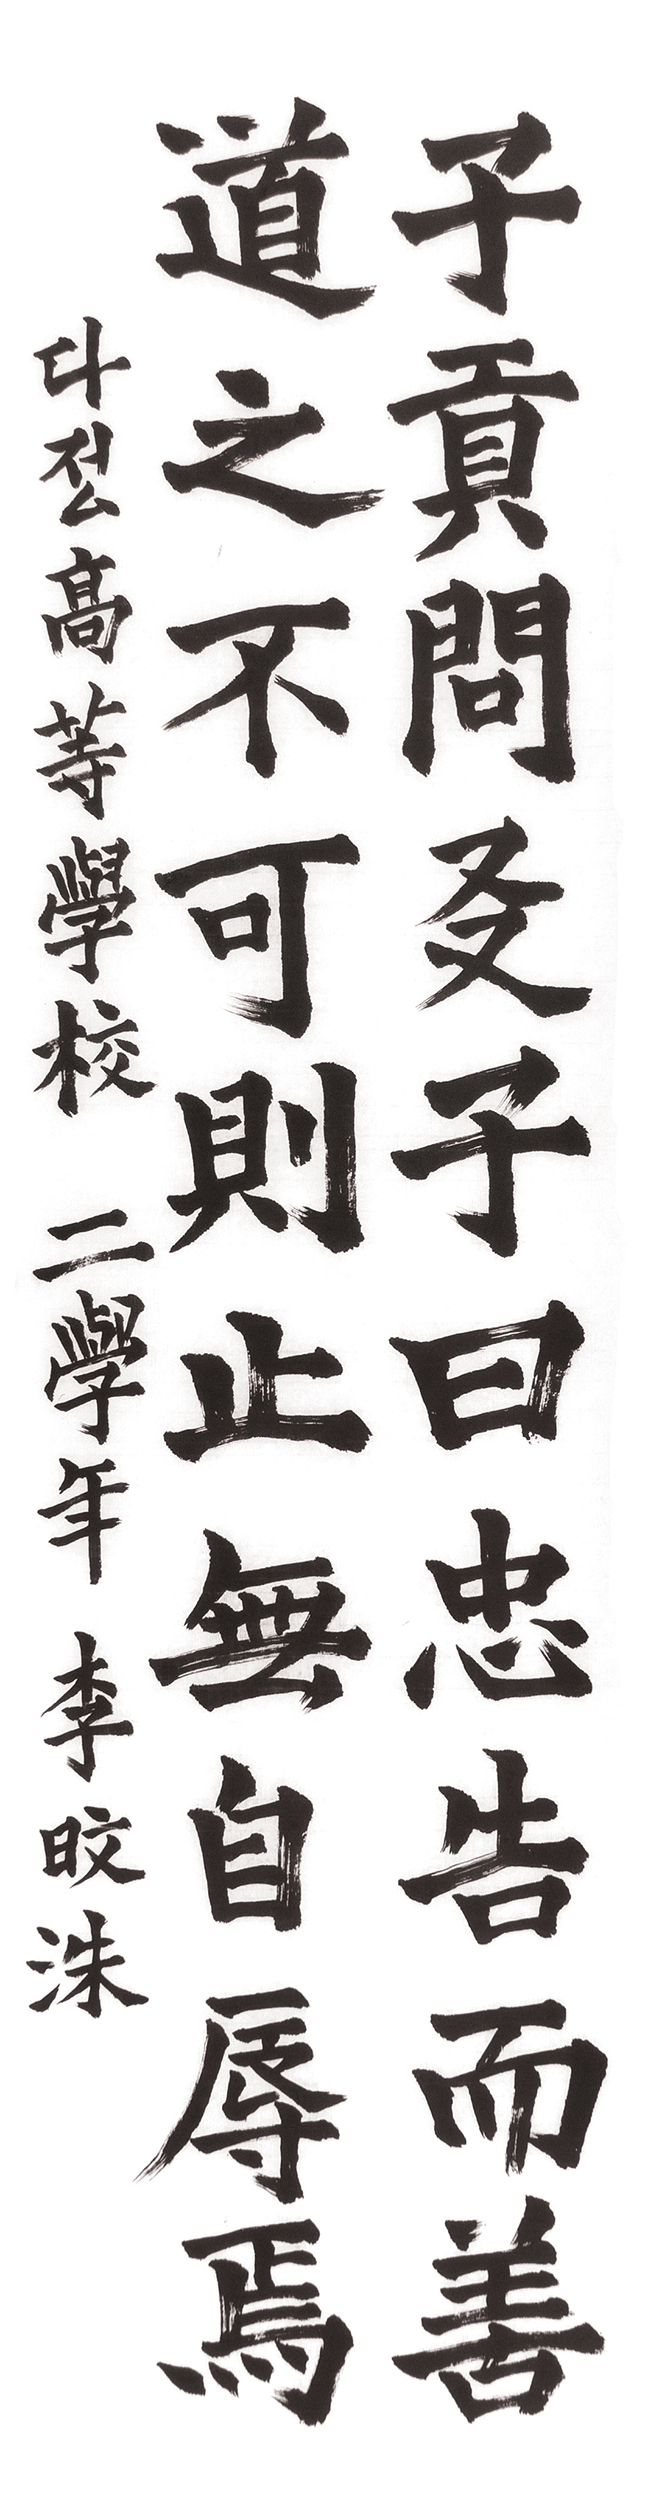 子貢問友子曰忠告而善
道之不可則止無自辱焉
다정高等學校 二學年 李旼洙